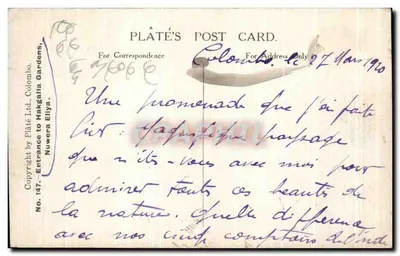 PLÂTÉ'S POST CARD.
For Correspondence
For Address Only.
Colombo. le 27 Mars 1920
Une promenade que j'ai faite
hier: Magnifique paysage
que n'êtes-vous avec moi pour
admirer toutes ces beautés de
la nature. Quelle différence
avec nos cinq comptoirs de l'Inde
Copyright by Plâté Ltd., Colombo.
No. 147. Entrance to Hakgalla Gardens,
Nuwera Eliya.